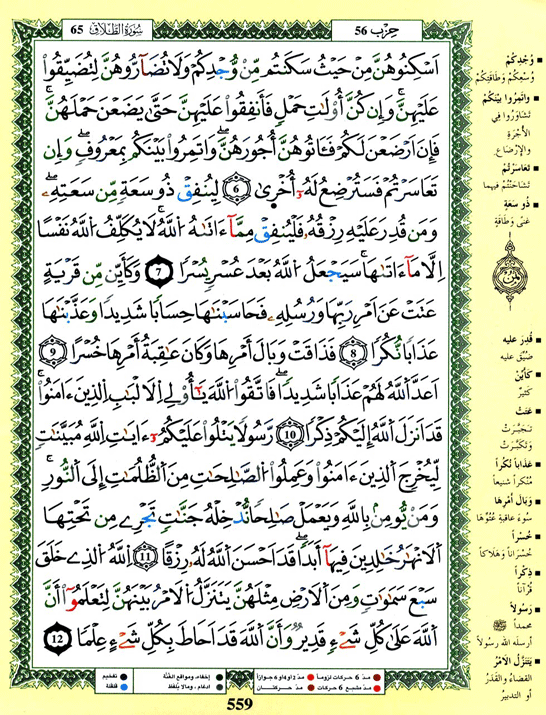 حِزْب 56
سُورَةُ الطَّلَاقِ 65
اَسْكِنُوهُنَّ مِنْ حَيْثُ سَكَنتُم مِّنْ وُّجْدِكُمْ وَلَا تُضَآرُّوهُنَّ لِتُضَيِّقُواْ
عَلَيْهِنَّ وَإِن كُنَّ أُوْلَٰتِ حَمْلٍ فَأَنفِقُواْ عَلَيْهِنَّ حَتَّىٰ يَضَعْنَ حَمْلَهُنَّ
فَإِنَ اَرْضَعْنَ لَكُمْ فَـَٔاتُوهُنَّ أُجُورَهُنَّ وَاتَمِرُواْ بَيْنَكُم بِمَعْرُوفٍ وَإِن
تَعَاسَرْتُمْ فَسَتُرْضِعُ لَهُۥٓ أُخْرَىٰ 6 لِيُنفِقْ ذُو سَعَةٍ مِّن سَعَتِهِۦ
وَمَن قُدِرَ عَلَيْهِ رِزْقُهُۥ فَلْيُنفِقْ مِمَّآ ءَاتَىٰهُ اُللَّهُ لَا يُكَلِّفُ اُللَّهُ نَفْسًا
اِلَّا مَآ ءَاتَىٰهَا سَيَجْعَلُ اُللَّهُ بَعْدَ عُسْرٍ يُسْرًا 7 وَكَأَيِّن مِّن قَرْيَةٍ
عَتَتْ عَنَ اَمْرِ رَبِّهَا وَرُسُلِهِۦ فَحَاسَبْنَٰهَا حِسَابًا شَدِيدًا وَعَذَّبْنَٰهَا
عَذَابًا نُّكُرًا 8 فَذَاقَتْ وَبَالَ أَمْرِهَا وَكَانَ عَاقِبَةُ أَمْرِهَا خُسْرًا 9
اَعَدَّ اَللَّهُ لَهُمْ عَذَابًا شَدِيدًا فَاتَّقُواْ اُللَّهَ يَٰٓأُوْلِي اِلَالْبَٰبِ اِلذِينَ ءَامَنُواْ
قَدَ اَنزَلَ اَللَّهُ إِلَيْكُمْ ذِكْرًا 10 رَّسُولًا يَتْلُواْ عَلَيْكُمُۥٓ ءَايَٰتِ اِللَّهِ مُبَيَّنَٰتٍ
لِّيُخْرِجَ اَلذِينَ ءَامَنُواْ وَعَمِلُواْ اُلصَّٰلِحَٰتِ مِنَ اَلظُّلُمَٰتِ إِلَى اَلنُّورِ
وَمَنْ يُّومِنۢ بِاللَّهِ وَيَعْمَلْ صَٰلِحًا نُّدْخِلْهُ جَنَّٰتٍ تَجْرِے مِن تَحْتِهَا
اَلَانْهَٰرُ خَٰلِدِينَ فِيهَآ أَبَدًا قَدَ اَحْسَنَ اَللَّهُ لَهُۥ رِزْقًا 11 اِللَّهُ اُلذِے خَلَقَ
سَبْعَ سَمَٰوَٰتٍ وَمِنَ اَلَارْضِ مِثْلَهُنَّ يَتَنَزَّلُ اُلَامْرُ بَيْنَهُنَّ لِتَعْلَمُوٓاْ أَنَّ
اَللَّهَ عَلَىٰ كُلِّ شَےْءٍ قَدِيرٌ وَأَنَّ اَللَّهَ قَدَ اَحَاطَ بِكُلِّ شَےْءٍ عِلْمًا 12
وُجْدِكُمْ
وُسْعِكُمْ وَطَاقَتِكُمْ
وَاتَمِرُوا بَيْنَكُمْ
تَشَاوَرُوا فِي
الأُجْرَةِ
وَالإرْضَاعِ.
تَعَاسَرْتُمْ
تَشَاحَنْتُمْ فيهما
ذُو سَعَةٍ
غِنًى وَطَاقَةٍ
قُدِرَ عليه
ضُيِّقَ عليه
كَأَيِّنْ
كَثِيرٌ
عَتَتْ
تَجَبَّرَتْ
وَتَكَبَّرَتْ
عَذَاباً نُكُراً
مُنْكَراً شَنِيعاً
وَبَالَ أَمْرِهَا
سُوءَ عاقبةِ عُتُوِّهَا
خُسْراً
خُسْرَاناً وَهَلَاكاً
ذِكْراً
قُرْآناً
رَسُولاً
محمداً ﷺ
أرسلَه الله رسولاً
يَتَنَزَّلُ الأَمْرُ
القضاءُ والقَدَرُ
أو التدبيرُ
مدّ 6 حركات لزوماً
مدّ 2 أو 4 أو 6 جوازاً
إخفاء، ومواقع الغُنَّة
تفخيم
مدّ مشبع 6 حركات
مدّ حركتان
ادغام، وما لا يُلفَظ
قلقلة
559